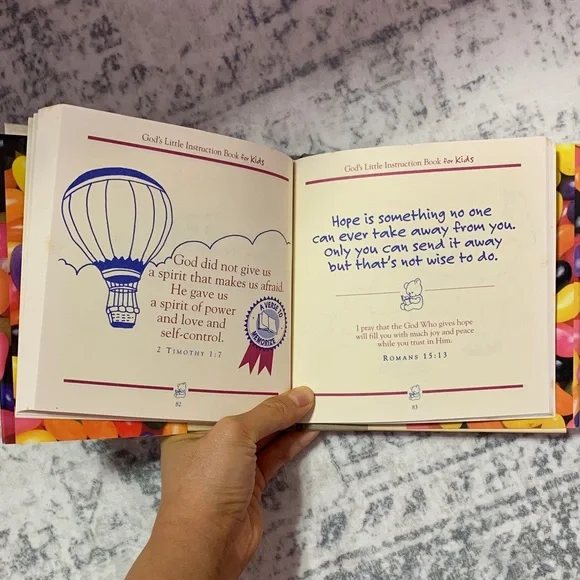 God's Little Instruction Book for Kids
God did not give us
a spirit that makes us afraid.
He gave us
a spirit of power
and love and
self-control.
2 TIMOTHY 1:7
A VERSE TO
MEMORIZE
82
God's Little Instruction Book for Kids
Hope is something no one
can ever take away from you.
Only you can send it away
but that's not wise to do.
I pray that the God Who gives hope
will fill you with much joy and peace
while you trust in Him.
ROMANS 15:13
83